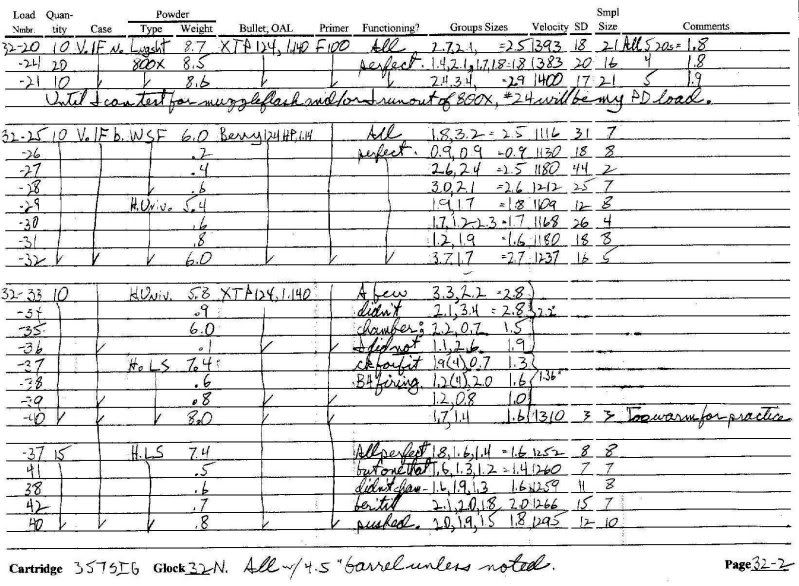 Load Nmbr. Quan- tity Case Powder Type Weight Bullet, OAL Primer Functioning? Groups Sizes Velocity SD Smpl Size Comments
32-20 10 V.IF N. Lngsht 8.7 XTP124, 1.140 F100 All 2.7,2.1, =2.5 1393 18 21 All 5 20s = 1.8
-24 20 800X 8.5 perfect. 1.4,2.1,1.7,1.8=1.8 1383 20 16 4 1.8
-21 10 8.6 2.4,3.4 =2.9 1400 17 21 5 1.9
Until I can test for muzzleflash and/or I run out of 800X, #24 will be my PD load.
32-25 10 V.IF b. WSF 6.0 Berry 124 HP, 1.14 All 1.8,3.2 = 2.5 1116 31 7
-26 .2 perfect. 0.9,0.9 =0.9 1130 18 8
-27 .4 2.6,2.4 =2.5 1180 44 2
-28 .6 3.0,2.1 =2.6 1212 25 7
-29 H.Univ. 5.4 1.9,1.7 =1.8 1109 12 8
-30 .6 1.7,1.2-2.3=1.7 1168 26 4
-31 .8 1.2,1.9 =1.6 1180 18 8
-32 6.0 3.7,1.7 =2.7 1237 16 5
32-33 10 H.Univ. 5.8 XTP124, 1.140 A few 3.3,2.2 =2.8
-34 .9 didn't 2.1,3.4 =2.8
-35 6.0 chamber; 2.2,0.7 1.5
-36 .1 I did not 1.1,2.6 1.9
-37 H.LS 7.4 ck for fit 1.9(4),0.7 1.3
-38 .6 B4 firing. 1.2(4),2.0 1.6 1.36"
-39 .8 1.2,0.8 1.0
-40 8.0 1.7,1.4 1.6 1310 3 3 Too warm for practice
-37 15 H.LS 7.4 All perfect 1.8,1.6,1.4 =1.6 1252 8 8
41 .5 but one that 1.6,1.3,1.2 =1.4 1260 7 7
38 .6 didn't cham- 1.6,1.9,1.3 1.6 1259 11 8
42 .7 ber til 2.1,2.0,1.8 2.0 1266 15 7
40 .8 pushed. 2.0,1.9,1.5 1.8 1295 12 10
Cartridge 357SIG Glock 32N. All w/ 4.5" barrel unless noted. Page 32-2